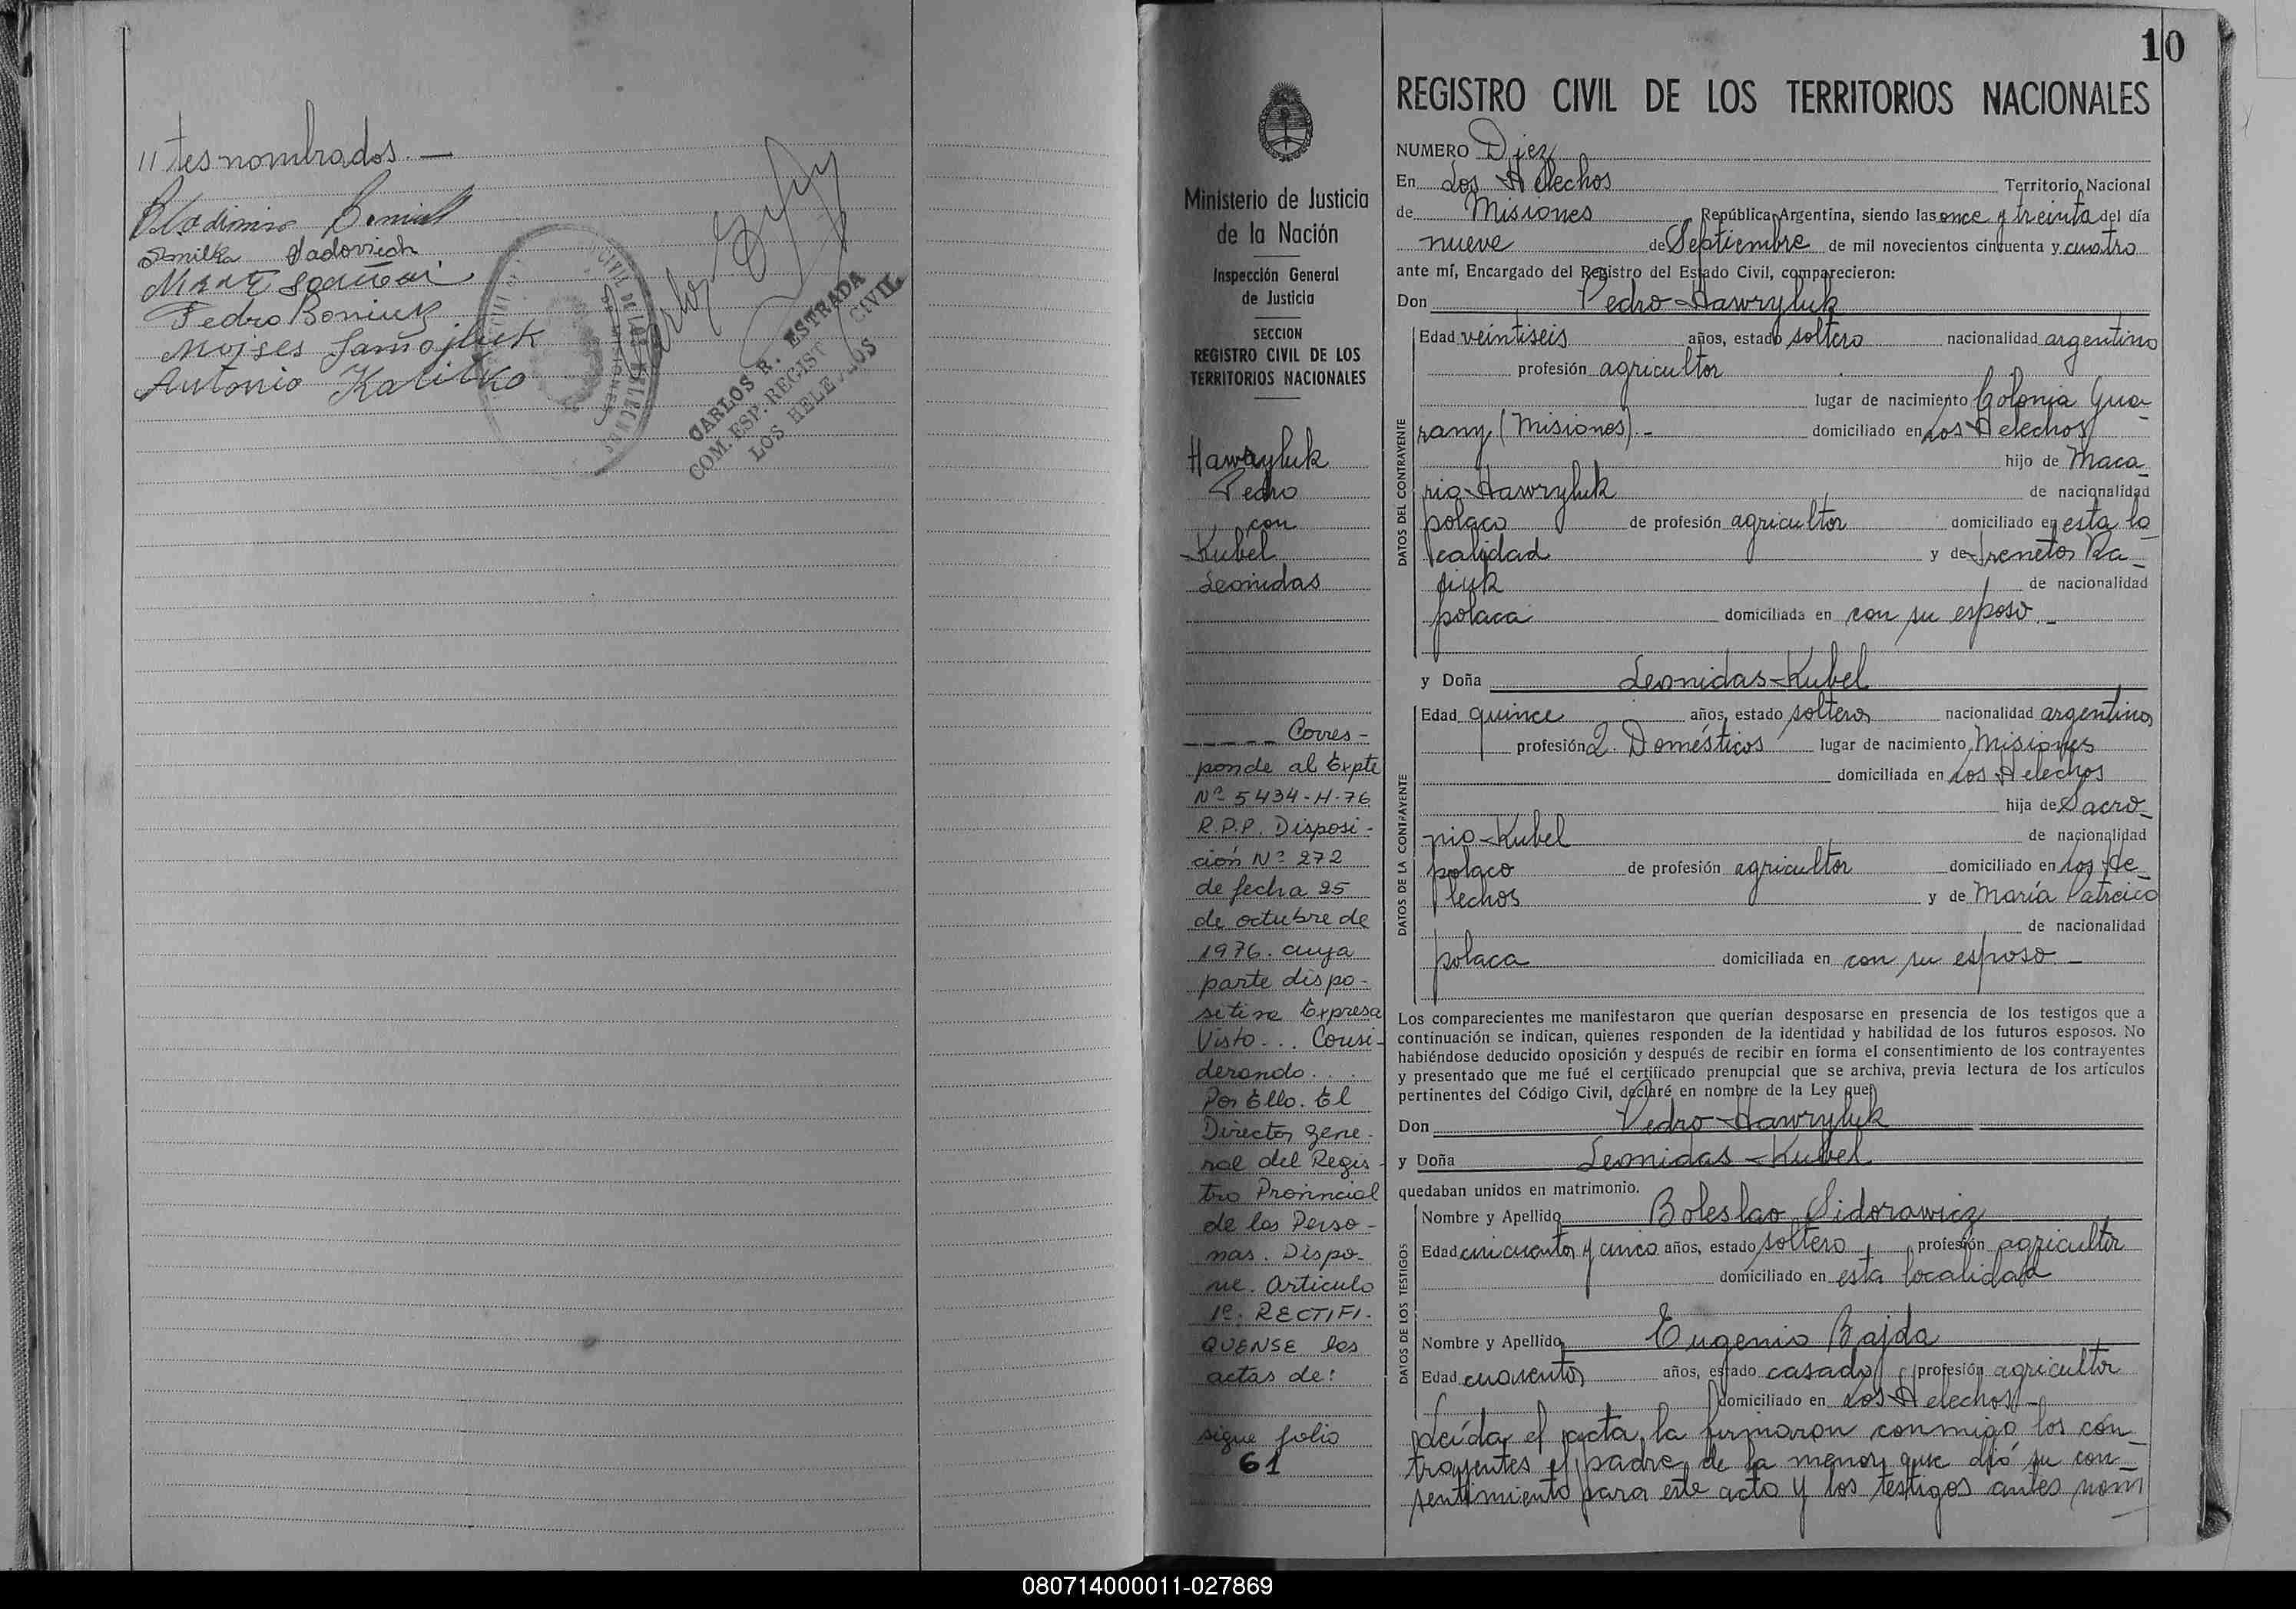 11 tes nombrados. —
Pedro Boniuk
Moises Samojluk
Antonio Kalitko
CARLOS R. ESTRADA
COM. ESP. REGIST CIVIL
LOS HELE OS
10
REGISTRO CIVIL DE LOS TERRITORIOS NACIONALES
Ministerio de Justicia
de la Nación
Inspección General
de Justicia
SECCION
REGISTRO CIVIL DE LOS
TERRITORIOS NACIONALES
Hawryluk
Pedro
con
Kubel
Leonidas
_ _ _ _ _ Corres-
ponde al Expte
Nº 5434-H-76
R.P.P. Disposi-
ción Nº 272
de fecha 25
de octubre de
1976. cuya
parte dispo-
sitiva Expresa
Visto... Consi-
derando...
Por Ello. El
Director gene-
ral del Regis-
tro Provincial
de las Perso-
nas. Dispo-
ne. Artículo
1º: RECTIFI-
QUENSE las
actas de:
sigue folio
61
NUMERO Diez
En Los Helechos Territorio Nacional
de Misiones República Argentina, siendo las once y treinta del día
nueve de Septiembre de mil novecientos cincuenta y cuatro
ante mí, Encargado del Registro del Estado Civil, comparecieron:
Don Pedro Hawryluk
DATOS DEL CONTRAYENTE
Edad veintiseis años, estado soltero nacionalidad argentino
profesión agricultor
lugar de nacimiento Colonia Gua-
rany (Misiones).- domiciliado en Los Helechos
hijo de Maca-
rio Hawryluk de nacionalidad
polaco de profesión agricultor domiciliado en esta lo-
calidad y de
de nacionalidad
polaca domiciliada en con su esposo.-
y Doña Leonidas Kubel
DATOS DE LA CONTRAYENTE
Edad quince años, estado soltera nacionalidad argentina
profesión Q. Domésticos lugar de nacimiento Misiones
domiciliada en Los Helechos
hija de
nio Kubel de nacionalidad
polaco de profesión agricultor domiciliado en Los He-
lechos y de María
de nacionalidad
polaca domiciliada en con su esposo.-
Los comparecientes me manifestaron que querían desposarse en presencia de los testigos que a
continuación se indican, quienes responden de la identidad y habilidad de los futuros esposos. No
habiéndose deducido oposición y después de recibir en forma el consentimiento de los contrayentes
y presentado que me fué el certificado prenupcial que se archiva, previa lectura de los artículos
pertinentes del Código Civil, declaré en nombre de la Ley que
Don Pedro Hawryluk
y Doña Leonidas Kubel
quedaban unidos en matrimonio.
DATOS DE LOS TESTIGOS
Nombre y Apellido Boleslao Sidorawicz
Edad cincuenta y cinco años, estado soltero profesión agricultor
domiciliado en esta localidad
Nombre y Apellido Eugenio Bajda
Edad cuarenta años, estado casado profesión agricultor
domiciliado en Los Helechos.-
Leída el acta, la firmaron conmigo los con-
trayentes el padre de la menor que dió su con-
sentimiento para este acto y los testigos antes nom
080714000011-027869